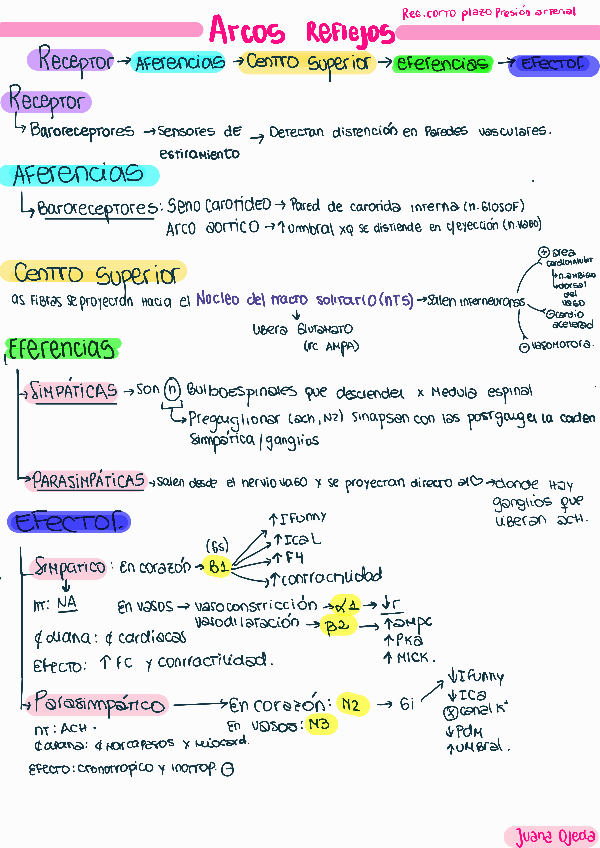 Reg. corto plazo Presión arterial
Arcos Reflejos
Receptor → Aferencias → Centro Superior → eferencias → Efector.
Receptor
Baroreceptores → Sensores de estiramiento → Detectan distención en Paredes vasculares.
Aferencias
Baroreceptores: Seno Carotideo → Pared de carotida interna (n. Glosof)
Arco aortico → ↑ umbral xq se distiende en eyección (n. vago)
Centro Superior
as Fibras se proyectan hacia el Núcleo del tracto solitario (NTS) → Salen interneuronas
⊕ área cardioinhibit
→ n. ambiguo
→ dorsal del vago
⊖ cardio acelerad
⊖ Vasomotora.
Libera Glutamato
(rc AMPA)
Eferencias
→ Simpáticas → Son (n) Bulboespinales que descienden x Medula espinal
→ Preganglionar (ach, N2) Sinapsan con las postganger la caden
Simpática / ganglios
→ Parasimpáticas → salen desde el nervio vago y se proyectan directo al ♡ → donde Hay
ganglios que
liberan ach.
Efector.
Simpatico: En corazón → (Gs) B1
↑ I Funny
↑ Ica L
↑ F4
↑ contractilidad
nt: NA
En vasos → vasoconstricción → α1 → ↓r
vasodilatación → B2 → ↑ ampc
↑ Pka
↑ MLCK.
¢ diana: ¢ cardiacas
Efecto: ↑ FC y contractilidad.
Parasimpático → En corazón: N2 → Gi
En vasos: N3
↓ I Funny
↓ ICa
⊗ canal K⁺
↓ PdM
↑ Umbral.
nt: ACH.
¢ diana: ¢ Marcapasos y Miocard.
Efecto: cronotropico y inotrop. ⊖
Juana Ojeda